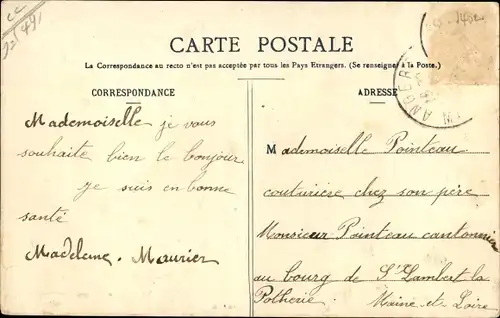 CARTE POSTALE
La Correspondance au recto n'est pas acceptée par tous les Pays Etrangers. (Se renseigner à la Poste.)
CORRESPONDANCE
Mademoiselle je vous
souhaite bien le bonjour
je suis en bonne
santé
Madeleine. Maurier
ADRESSE
Mademoiselle Pointeau
couturière chez son père
Monsieur Pointeau cantonnier
au bourg de St Lambert la
Potherie.
Maine-et-Loire